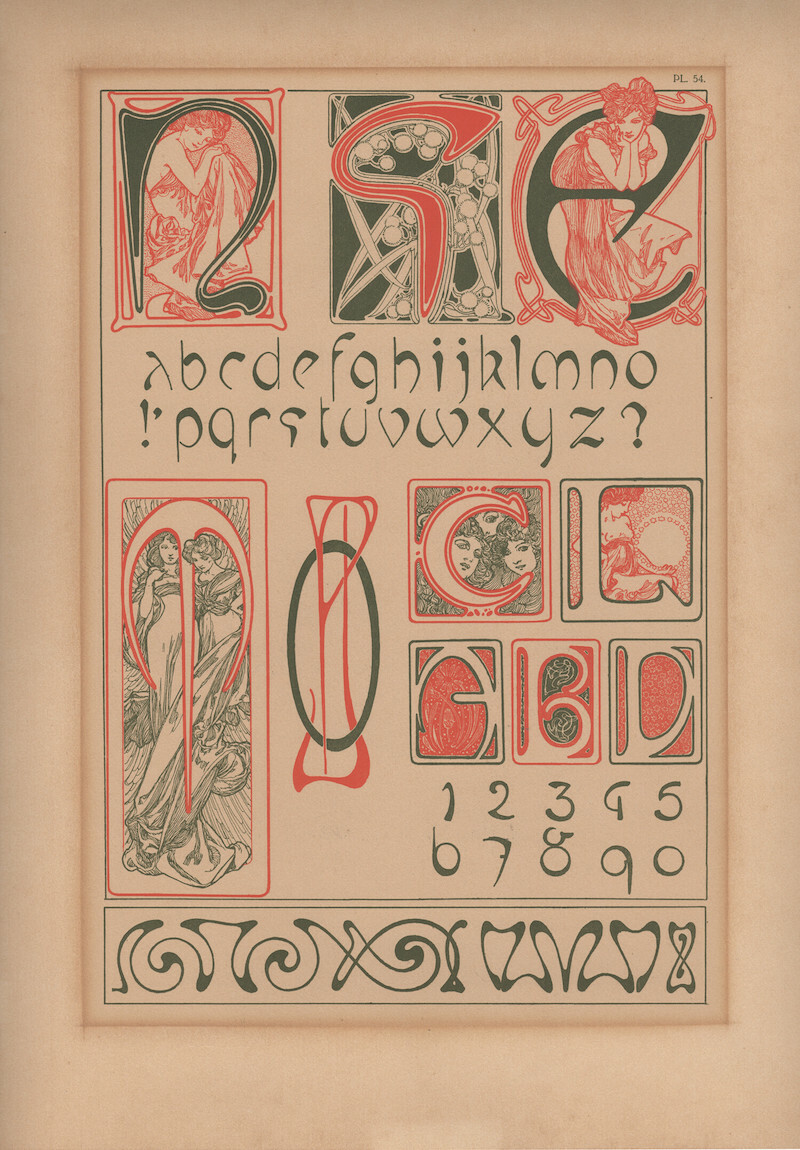 PL. 54.
n s e
abcdefghijklmno
!'pqrstuvwxyz?
M I O C L
A B D
1 2 3 4 5
6 7 8 9 0